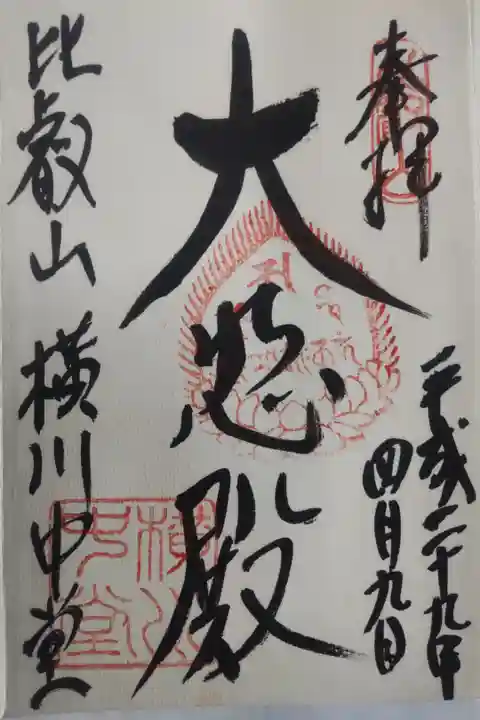 奉拝
平成二十九年
四月九日
大悲殿
比叡山 横川中堂
横川
中堂